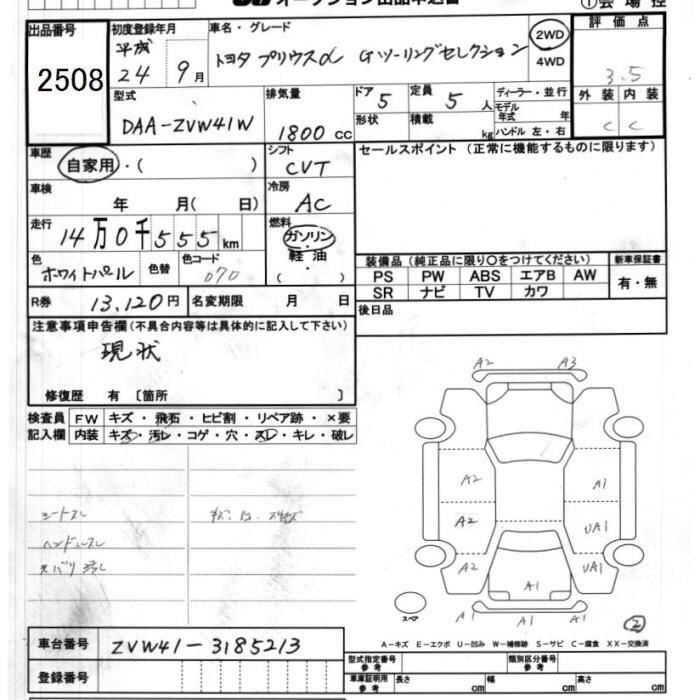 オークション出品申込書
①会場控
出品番号
2508
初度登録年月
平成
24年 9月
車名・グレード
トヨタ プリウスα Gツーリングセレクション
2WD
4WD
評価点
3.5
型式
DAA-ZVW41W
排気量
1800 cc
ドア
5
定員
5 人
形状
積載
kg
ディーラー・並行
モデル
年式 年
ハンドル 左・右
外装 内装
C C
車歴
自家用・( )
シフト
CVT
セールスポイント (正常に機能するものに限ります)
車検
年 月( 日)
冷房
AC
走行
14万0千555km
燃料
ガソリン
軽油
( )
色
ホワイトパール
色替
色コード
070
装備品 (純正品に限り○をつけてください)
新車保証書
PS PW ABS エアB AW
SR ナビ TV カワ
有・無
R券 13,120円
名変期限 月 日
後日品
注意事項申告欄(不具合内容等は具体的に記入して下さい)
現状
修復歴 有 〔箇所 〕
検査員
記入欄
FW キズ・飛石・ヒビ割・リペア跡・×要
内装 キズ・汚レ・コゲ・穴・スレ・キレ・破レ
シートスレ
ハンドルスレ
A2 A3
A2 A1
A2 UA1
A2 UA1
A1
A1 A1
スペア
②
車台番号 ZVW41-3185213
登録番号
A-キズ E-エクボ U-凹み W-補修跡 S-サビ C-腐食 XX-交換済
型式指定番号
参考
類別区分番号
参考
車庫証明用
参考
長さ cm
幅 cm
高さ cm